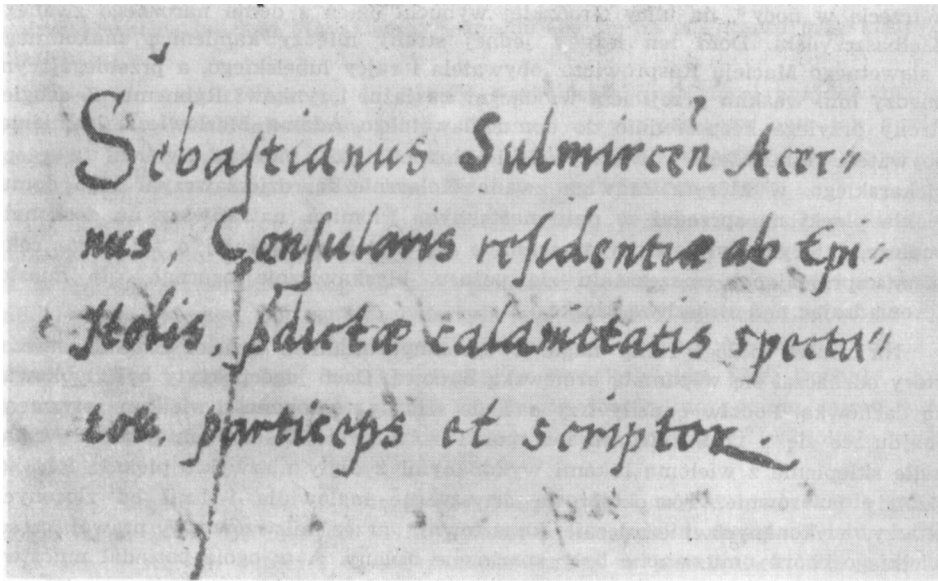 Sebaſtianus Sulmircen̄ Acer=
nus, Conſularis reſidentiæ ab Epi=
ſtolis, p̄dictæ calamitatis specta=
tor, particeps et scriptor.